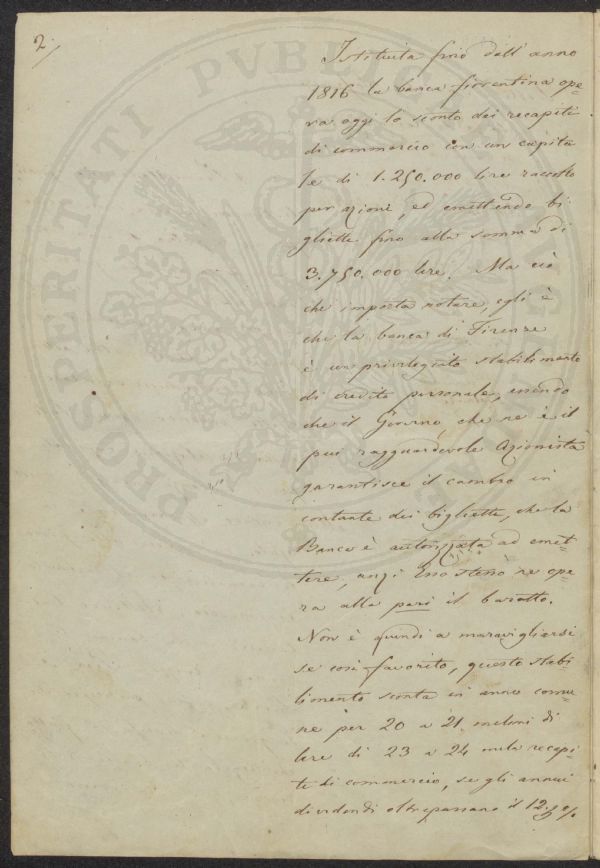 2/
Istituita fino dall'anno
1816 la banca fiorentina ope-
ra oggi lo sconto dei recapiti
di commercio con un capita
le di 1.250.000 lire raccolto
per azioni, ed emettendo bi-
glietti fino alla somma di
3.750.000 lire. Ma ciò
che importa notare, egli è
che la banca di Firenze
è un privilegiato stabilimento
di credito personale, essendo
che il Governo, che ne è il
più ragguardevole Azionista
garantisce il cambio in
contante dei biglietti, che la
Banca è autorizzata ad emet-
tere, anzi Esso stesso ne ope-
ra alla pari il baratto.
Non è quindi a maravigliarsi
se così favorito, questo stabi-
limento sconta in anno comu-
ne per 20 a 21 milioni di
lire di 23 a 24 mila recapi-
ti di commercio, se gli annui
dividendi oltrepassano il 12
PROSPERITATI PUBLICAE